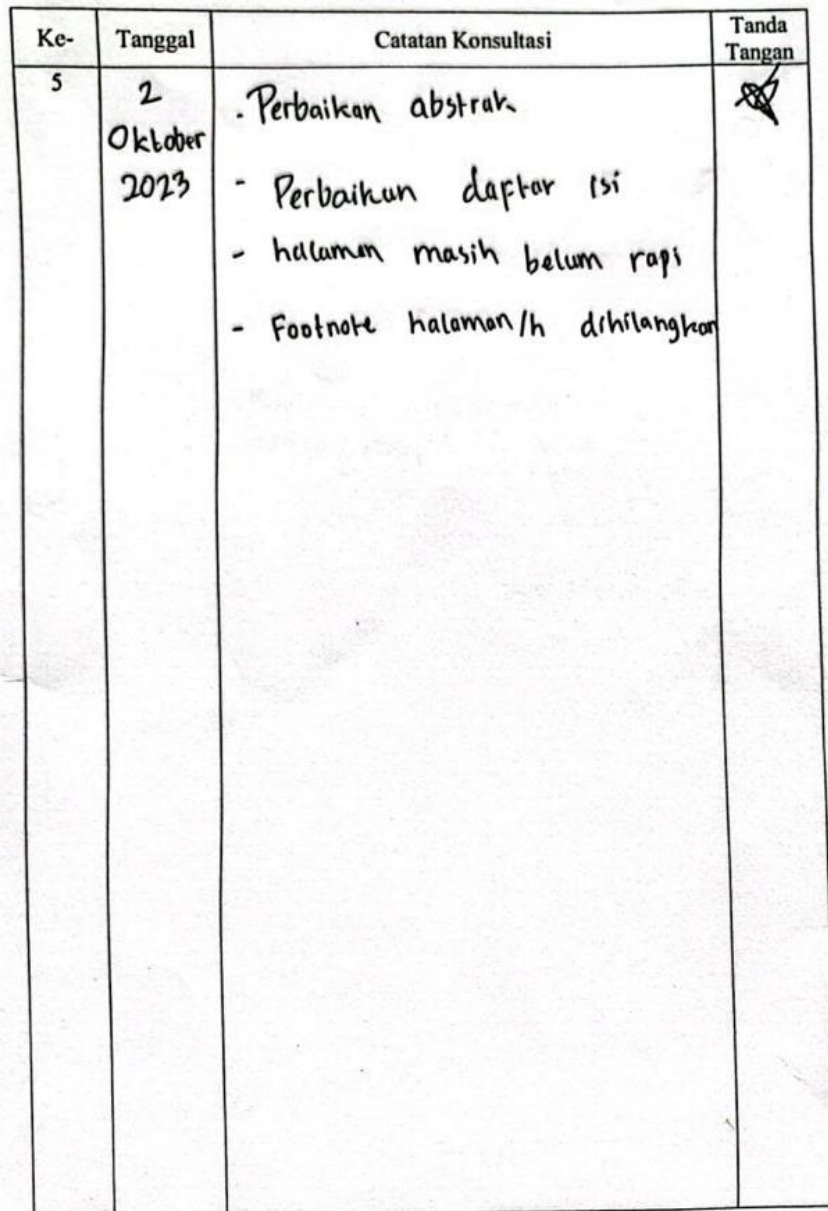 Ke- Tanggal Catatan Konsultasi Tanda Tangan
5
2 Oktober 2023
- Perbaikan abstrak
- Perbaikan daftar isi
- halaman masih belum rapi
- Footnote halaman/h dihilangkan